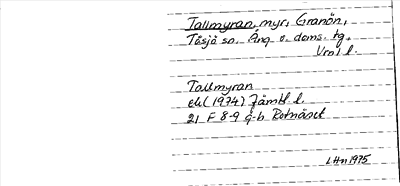 Tallmyran, myr, Granön,
Tåsjö sn. Ång. o. doms. hg.
Vrnl l.
Tallmyran
ek (1974) Jämtl. l.
21 F 8-9 g-b Rotnäset
LHn 1975